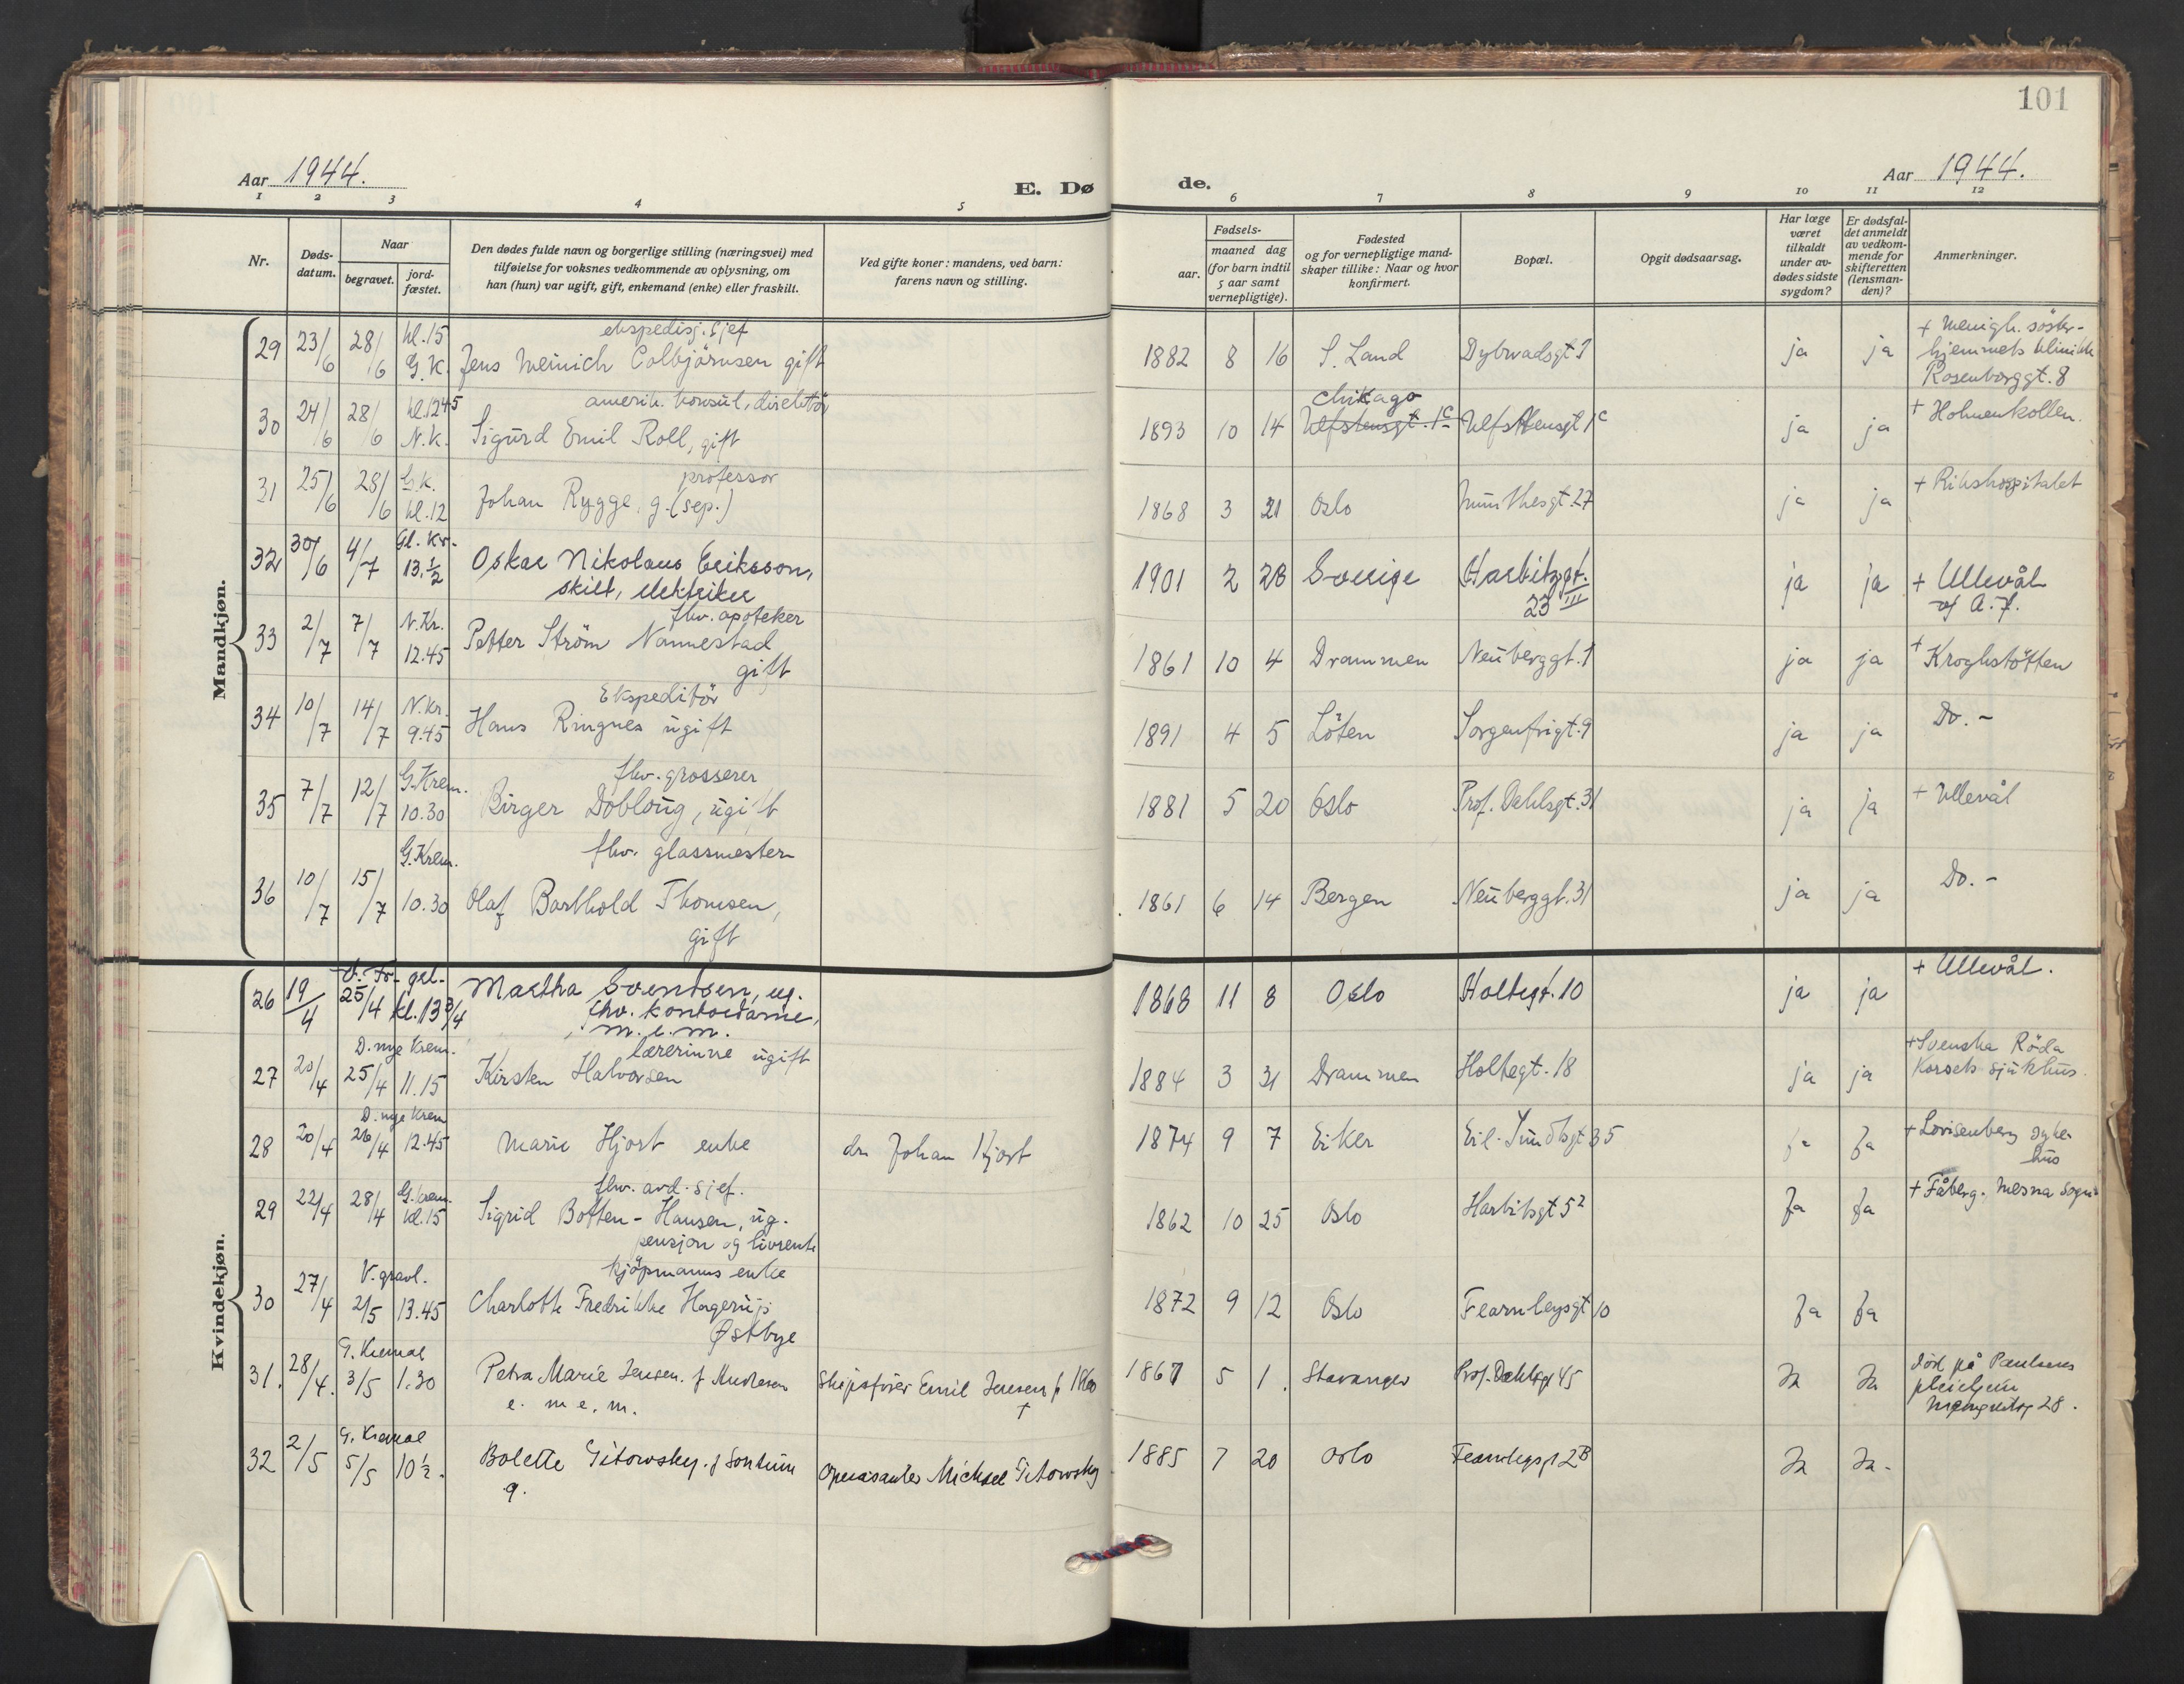 101
Aar 1944.
E. Dø
de.
Aar 1944.
1 2 3 4 5 6 7 8 9 10 11 12
Nr.
Døds-
datum.
Naar
begravet.
jord-
fæstet.
Den dødes fulde navn og borgerlige stilling (næringsvei) med
tilføielse for voksnes vedkommende av oplysning, om
han (hun) var ugift, gift, enkemand (enke) eller fraskilt.
Ved gifte koner: mandens, ved barn:
farens navn og stilling.
Fødsels-
aar.
maaned dag
(for barn indtil
5 aar samt
vernepligtige).
Fødested
og for vernepligtige mand-
skaper tillike: Naar og hvor
konfirmert.
Bopæl.
Opgit dødsaarsag.
Har læge
været
tilkaldt
under av-
dødes sidste
sygdom?
Er dødsfal-
det anmeldt
av vedkom-
mende for
skifteretten
(lensman-
den)?
Anmerkninger.
Mandkjøn.
ekspedisj. sjef
29 23/6 28/6 kl. 15 G. K. Jens Meinich Colbjörnsen gift 1882 8 16 S. Land Dybwadsgt 1 ja ja + Menigh. söster-
hjemmets klinikk
Rosenborggt. 8
amerik. konsul, direktör
30 24/6 28/6 kl. 1245 N. K. Sigurd Emil Roll, gift 1893 10 14 Chikago Ulfstensgt. 1c Ulfstensgt 1c ja ja + Holmenkollen.
professor
31 25/6 28/6 G. K. kl. 12 Johan Rygge, g. (sep.) 1868 3 21 Oslo Munthesgt. 27 ja ja + Rikshospitalet
32 30/6 4/7 Gl. Kr. 13.½ Oskar Nikolaus Eriksson, 1901 2 28 Sverige Harbitzgt. 23 III ja ja + Ullevål
skilt, elektriker
af A. f.
fhv. apoteker
33 2/7 7/7 N. Kr. 12.45 Petter Ström Nannestad 1861 10 4 Drammen Neuberggt. 1 ja ja + Kroghstötten
gift
Ekspeditör
34 10/7 14/7 N. Kr. 9.45 Hans Ringnes ugift 1891 4 5 Löten Sorgenfrigt. 9 ja ja Do. -
fhv. grosserer
35 7/7 12/7 G. Krem. 10.30 Birger Dobloug, ugift 1881 5 20 Oslo Prof. Dahlsgt. 31 ja ja + Ullevål
fhv. glassmester
36 10/7 15/7 G. Krem. 10.30 Olaf Barthold Thomsen, 1861 6 14 Bergen Neuberggt. 31 ja ja Do. -
gift
Kvindekjøn.
26 19/4 V. Fr. grl. 25/4 kl. 13 3/4 Martha Svendsen, ug. 1868 11 8 Oslo Holtegt. 10 ja ja + Ullevål.
fhv. kontordame,
m. e. m.
lærerinne ugift
27 20/4 D. nye Krem. 25/4 11.15 Kirsten Halvorsen 1884 3 31 Drammen Holtegt. 18 ja ja + Svenska Röda
Korsets sjukhus.
28 20/4 D. nye Krem 26/4 12.45 Marie Hjort enke dr. Johan Hjort 1874 9 7 Eiker Eil. Sundtsgt 35 ja ja + Lovisenberg syke-
hus
fhv. avd. sjef.
29 22/4 28/4 G. Krem. kl. 15 Sigrid Botten-Hansen, ug. 1862 10 25 Oslo Harbitzgt 5² Ja Ja + Fåberg. Mesna sogn
pensjon og livrente
kjöpmanns enke
30 27/4 V. gravl. 2/5 13.45 Charlotte Fredrikke Hagerup 1872 9 12 Oslo Fearnleysgt 10 Ja Ja
Østbye
31. 28/4. G. Kremat 3/5 1.30 Petra Marie Jensen. f Andresen Skipsfører Emil Jensen f 1860 1867 5 1. Stavanger Prof. Dahlsgt 45 Ja Ja död på Paulsens
e. m. e. m. †
pleiehjem
28.
32 2/5 G. Kremat 5/5 10½. Bolette Gitowsky. f Sontum Operasanger Michael Gitowsky 1885 7 20 Oslo Fearnleysgt 2B Ja Ja.
g.